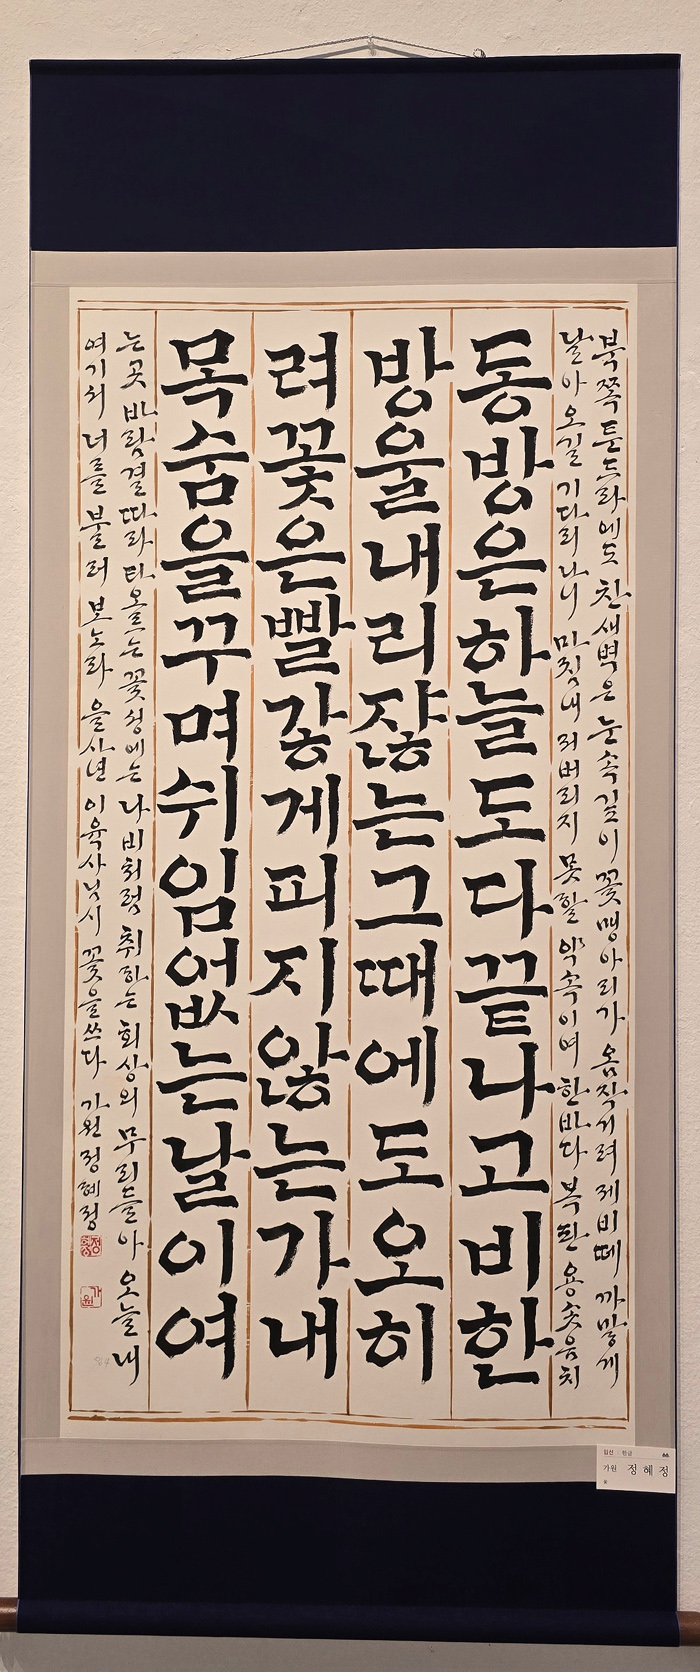 동방은하늘도다끝나고비한
방울내리쟎는그때에도오히
려꽃은빨갛게피지않는가내
목숨을꾸며쉬임없는날이여
북쪽 툰드라에도 찬 새벽은 눈 속 깊이 꽃 맹아리가 옴작거려 제비떼 까맣게
날아 오길 기다리나니 마침내 저버리지 못할 약속이여 한바다 복판 용솟음치
는 곳 바람결 따라 타오르는 꽃 성에는 나비처럼 취하는 회상의 무리들아 오늘 내
여기서 너를 불러 보노라 을사년 이육사님 시 꽃을 쓰다 가원 정혜정
가원
입선 한글
가원 정혜정